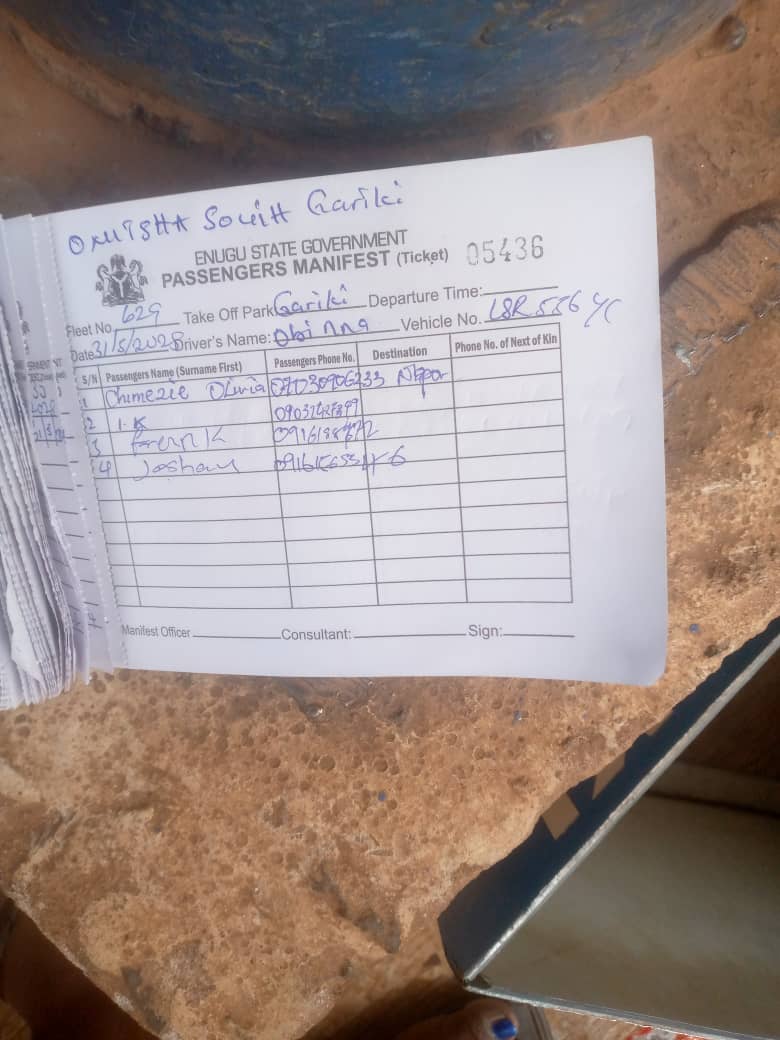 ONITSHA South Gariki
ENUGU STATE GOVERNMENT
PASSENGERS MANIFEST (Ticket) 05436
Fleet No 629 Take Off Park Gariki Departure Time:
Date 31/5/202 Driver's Name: Obinna Vehicle No. LSR 556 YC
S/N Passengers Name (Surname First) Passengers Phone No. Destination Phone No. of Next of Kin
1 Chimezie Olivia 07030906233 Nkpor
2 I.K
3 Frank
4
Manifest Officer Consultant: Sign: